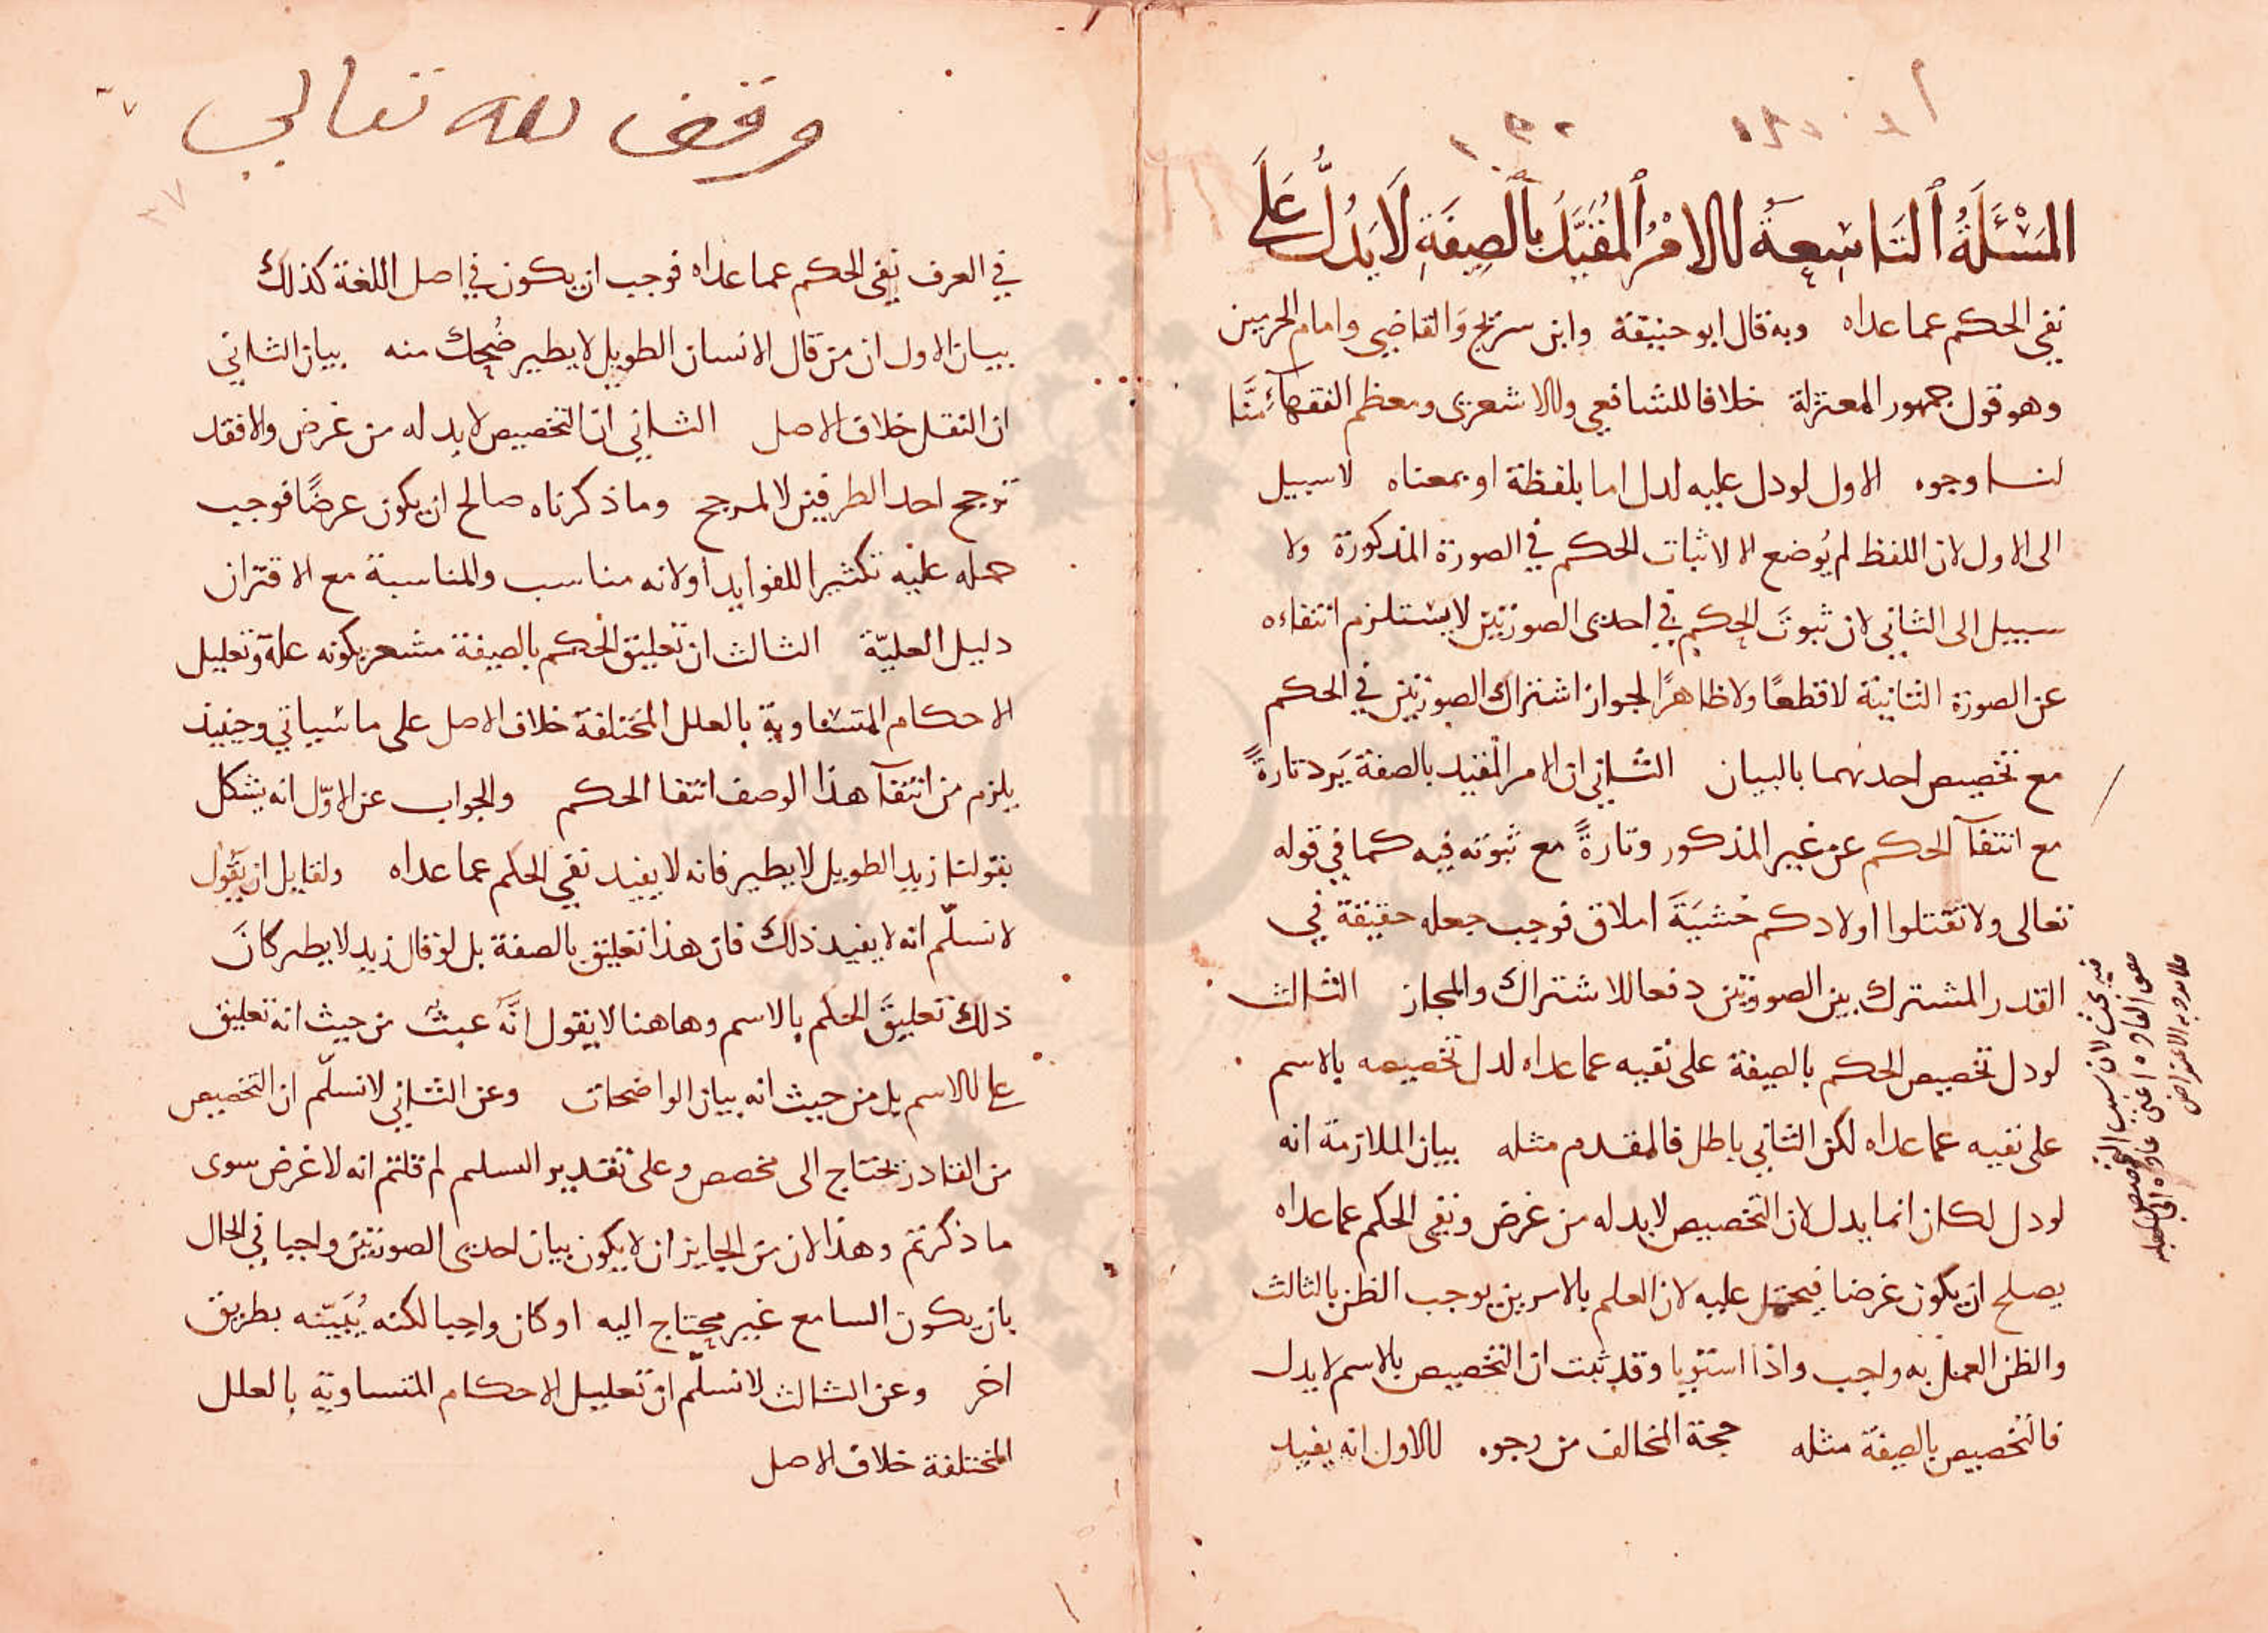 المَسْئَلَةُ ٱلتَاسِعَةُ الامْرُ ٱلمُقَيَّدُ بِٱلصِفَةِ لَا يَدُلُّ عَلَى
نفي الحكم عما عداه وبه قال ابو حنيفة وابن سريج وَالقاضي وامام الحرمين
وهو قول جمهور المعتزلة خلافا للشافعي والاشعرى ومعظم الفقهآء مِنَّا
لنا وجوه الاول لو دل عليه لدل اما بلفظة او بمعناه لا سبيل
الى الاول لان اللفظ لم يُوضع الا لاثبات الحكم في الصورة المذكورة ولا
سبيل الى الثاني لان ثبوتَ الحكم في احدى الصورتين لا يستلزم انتفاءه
عن الصورة الثانية لا قطعًا ولا ظاهرًا لجواز اشتراك الصورتين في الحكم
مع تخصيص احدىهما بالبيان الثاني ان الامر المقيد بالصفة يَرد تارةً
مع انتفآ الحكم عن غير المذكور وتارةً مع ثبوته فيه كما في قوله
تعالى ولا تقتلوا اولادكم خَشيَةَ املاق فوجب جعله حقيقة في
القدر المشترك بين الصورتين دفعا للاشتراك والمجاز الثالث
لو دل تخصيص الحكم بالصفة على نفيه عما عداه لدل تخصيصه بالاسم
على نفيه عما عداه لكن الثاني باطل فالمقدم مثله بيان الملازمة انه
لو دل لكان انما يدل لان التخصيص لا بد له من غرض ونفي الحكم عما عداه
يصلح ان يكون غرضا فيحمل عليه لان العلم بالامرين يوجب الظن بالثالث
والظن العمل به واجب واذا استويا وقد ثبت ان التخصيص بالاسم لا يدل
فالتخصيص بالصفة مثله حجة المخالف من وجوه الاول انه يفيد
فيه بحث لان سبب التخصيص
وقف لله تعالى
٣٧
في العرف نفي الحكم عما عداه فوجب ان يكون في اصل اللغة كذلك
بيان الاول ان من قال الانسان الطويل لا يطير ضُحِك منه بيان الثاني
ان النقل خلاف الاصل الثاني ان التخصيص لا بد له من غرض والا فقد
ترجح احد الطرفين لا لمرجح وما ذكرناه صالح ان يكون غرضًا فوجب
حمله عليه تكثيرا للفوايد او لانه مناسب والمناسبة مع الاقتران
دليل العليّة الثالث ان تعليق الحكم بالصفة مشعر بكونه علة وتعليل
الاحكام المتساوية بالعلل المختلفة خلاف الاصل على ما سياتي وحينيذ
يلزم من انتفآ هذا الوصف انتفا الحكم والجواب عن الاوّل انه يشكل
بقولنا زيد الطويل لا يطير فانه لا يفيد نفي الحكم عما عداه ولقايل ان يَقُول
لا نسلّم انه لا يفيد ذلك فان هذا تعليق بالصفة بل لو قال زيد لا يطير كانَ
ذلك تعليقَ الحكم بالاسم وهاهنا لا يقول انَّه عبث من حيث انه تعليق
على الاسم بل من حيث انه بيان الواضحات وعن الثاني لا نسلّم ان التخصيص
من القادر يحتاج الى مخصص وعلى تقدير السلم لم قلتم انه لا غرض سوى
ما ذكرتم وهذا لان من الجايز ان لا يكون بيان احدى الصورتين واجبا في الحال
بان يكون السامع غير محتاج اليه او كان واجبا لكنه يُبَيّنه بطريق
اخر وعن الثالث لا نسلّم ان تعليل الاحكام المتساوية بالعلل
المختلفة خلاف الاصل